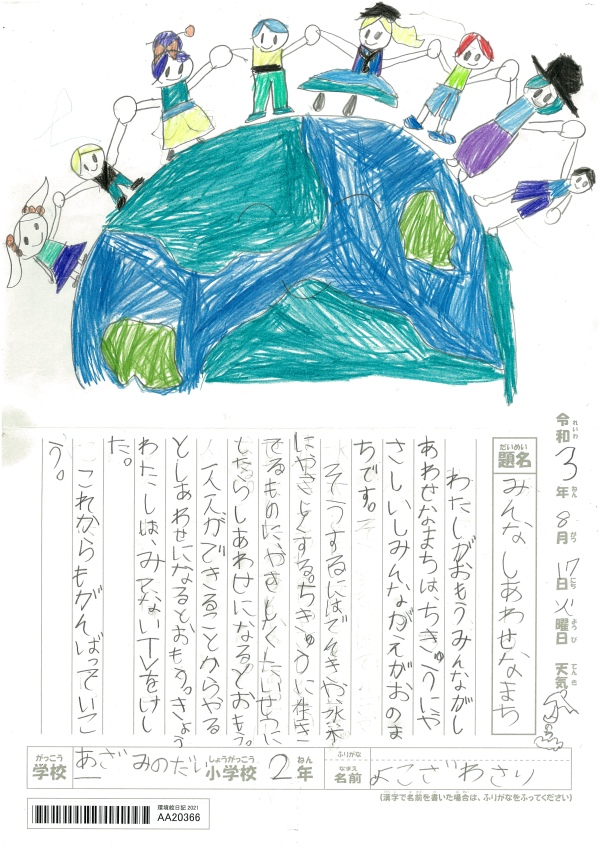 令和3年8月17日火曜日 天気
れいわ ねん がつ にち ようび てんき
だいめい
題名 みんなしあわせなまち
わたしがおもうみんながし
あわせなまちは、ちきゅうにや
さしいしみんながえがおのま
ちです。
そうするにはでんきや、水
はやさしくする。ちきゅうに生き
てるものに、やさしくたいせつに
したらしあわせになるとおもう。
一人一人ができることからやる
としあわせになるとおもう。きょう
わたしは、みてないTVをけし
た。
これからもがんばっていこ
う。
がっこう 学校 あざみのだい一 しょうがっこう 小学校 2 ねん 年
ふりがな
なまえ 名前 よこざわさり
(漢字で名前を書いた場合は、ふりがなをふってください)
環境絵日記 2021
AA20366